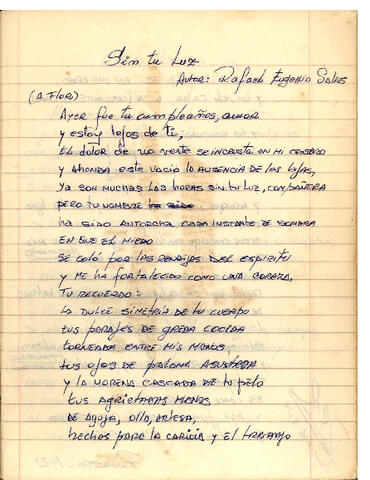 Sin tu Luz
Autor: Rafael Eugenio Salas
(A. FLOR)
Ayer fue tu cumpleaños, amor
y estoy lejos de ti,
El dolor de no verte se incrusta en mi cerebro
y ahonda este vacío la ausencia de los hijos,
Ya son muchas las horas sin tu luz, compañera
pero tu nombre ha sido
ha sido antorcha cada instante de sombra
en que el miedo
se coló por las rendijas del espíritu
y me ha fortalecido como una coraza,
tu recuerdo:
la dulce simetría de tu cuerpo
tus parajes de greda cocida
torneada entre mis manos
tus ojos de paloma asustada
y la morena cascada de tu pelo
tus agrietadas manos
de aguja, olla, artesa,
hechas para la caricia y el trabajo